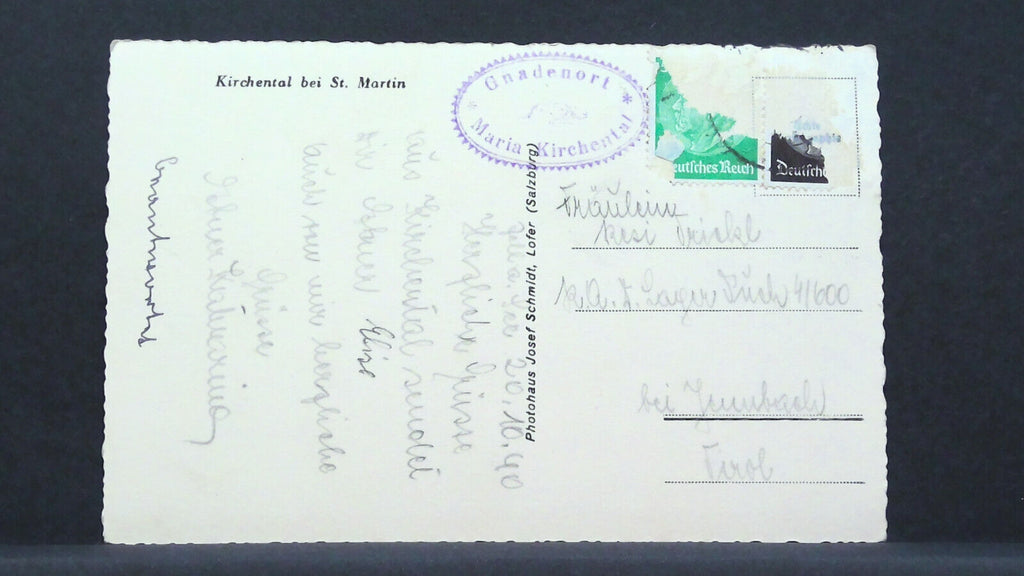 Kirchental bei St. Martin
Gnadenort
Maria Kirchental
eutsches Reich
Deutsch
Photohaus Josef Schmidt, Lofer (Salzburg)
20.10.40
Herzliche Grüsse
aus Kirchental sendet
dir Elise
auch von mir herzliche
Grüsse
Katharina
Fräulein
Resi
R.A.D. Lager 4/600
bei Jenbach
Tirol